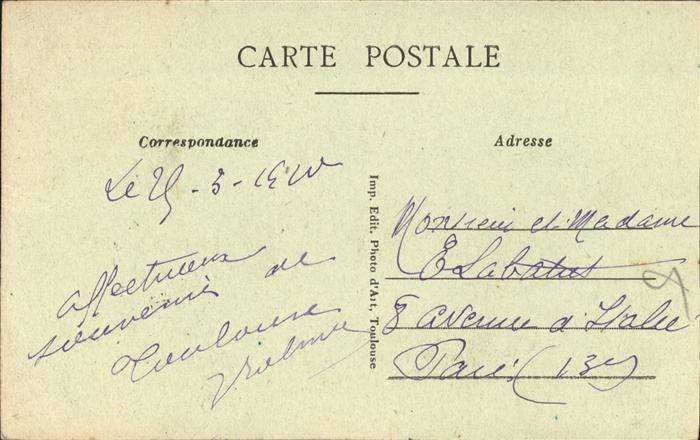 CARTE POSTALE
Correspondance
Le 25 - 3 -
affectueux
souvenir de
Toulouse
Imp. Edit. Photo d'Art, Toulouse
Adresse
Monsieur et Madame
E Labatut
8 avenue d'Italie
Paris (13e)